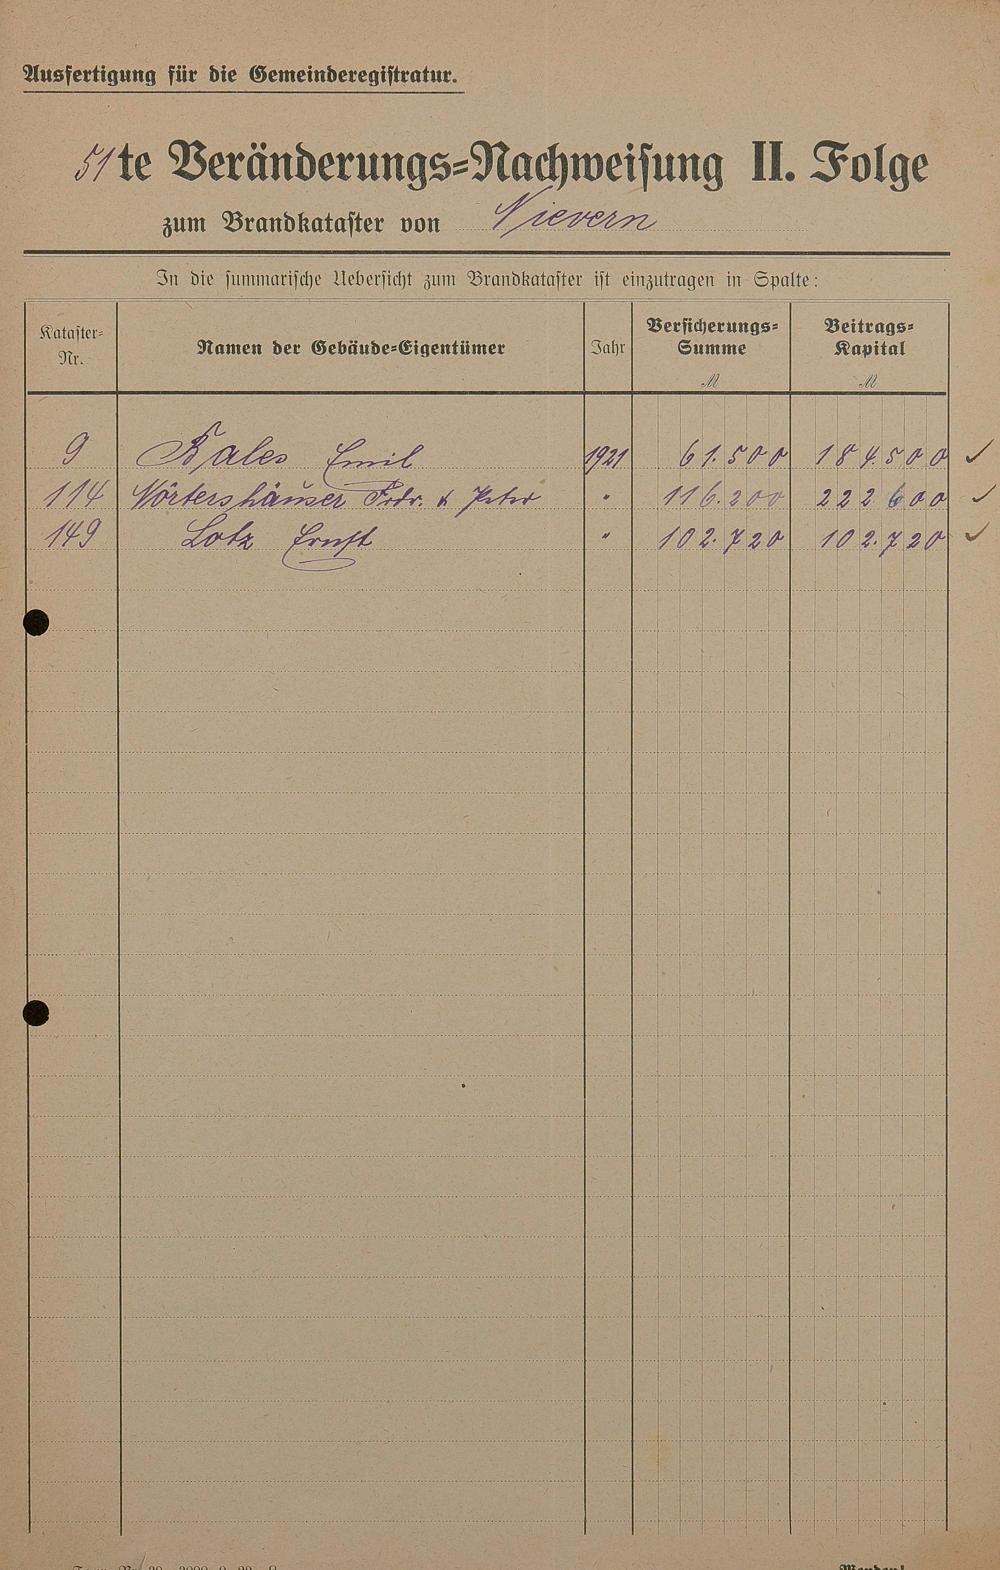 Ausfertigung für die Gemeinderegistratur.
51te Veränderungs=Nachweisung II. Folge
zum Brandkataster von Nievern
In die summarische Uebersicht zum Brandkataster ist einzutragen in Spalte:
Kataster=Nr. Namen der Gebäude=Eigentümer Jahr Versicherungs=Summe M Beitrags=Kapital M
9 Bales Emil 1921 61.500 184.500 ✓
114 Nörtershäuser Frdr. & Peter " 116.200 222 600 ✓
149 Lotz Ernst " 102.720 102.720 ✓
Wenden!